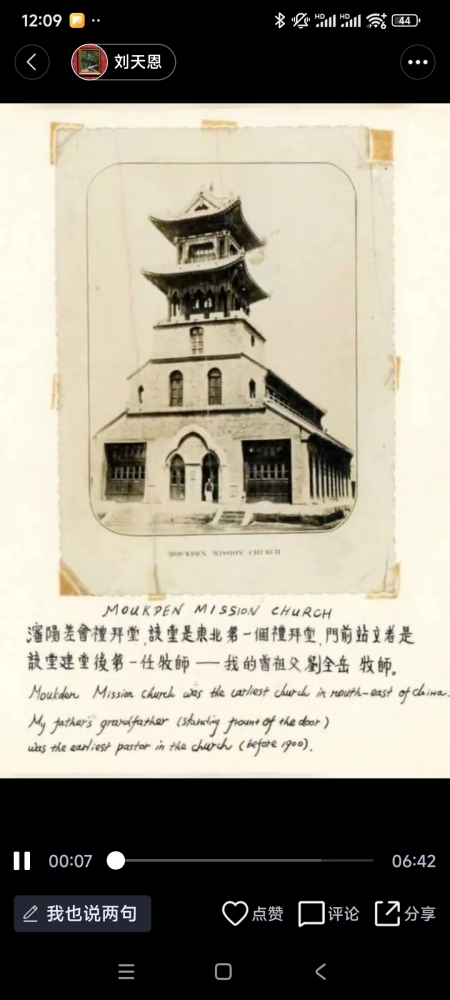 12:09
44
刘天恩
MOUKDEN MISSION CHURCH
MOUKDEN MISSION CHURCH
瀋陽差會禮拜堂,該堂是東北第一個禮拜堂,門前站立者是
該堂建堂後第一任牧師——我的曾祖父劉全岳 牧師。
Moukden Mission church was the earliest church in north-east of china.
My father's grandfather (standing frount of the door)
was the earliest pastor in the church (before 1900).
00:07
06:42
我也说两句
点赞
评论
分享